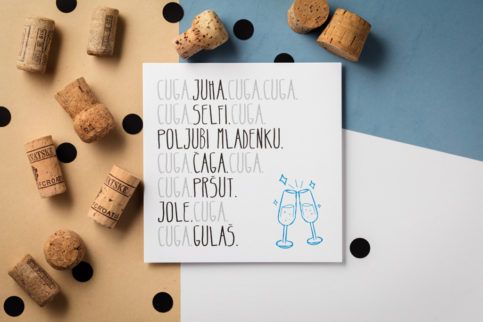 CUGA.JUHA.CUGA.CUGA.
CUGA.SELFI.CUGA.
POLJUBI MLADENKU.
CUGA.ČAGA.CUGA.
CUGA.PRŠUT.
JOLE.CUGA.
CUGA.GULAŠ.